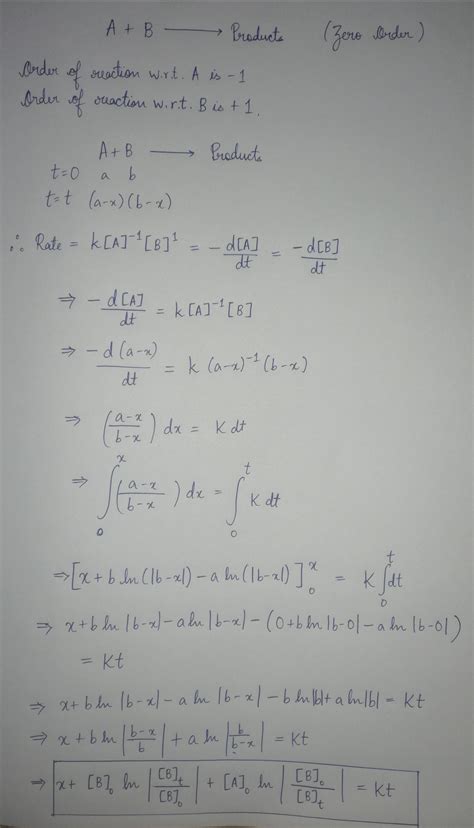 A + B ⟶ Products (Zero Order)
Order of reaction w.r.t. A is -1
Order of reaction w.r.t. B is +1.
A + B ⟶ Products
t=0 a b
t=t (a-x) (b-x)
∴ Rate = k[A]⁻¹[B]¹ = -d[A]/dt = -d[B]/dt
⇒ -d[A]/dt = k[A]⁻¹[B]
⇒ -d(a-x)/dt = k (a-x)⁻¹(b-x)
⇒ ((a-x)/(b-x)) dx = K dt
⇒ ∫₀ˣ ((a-x)/(b-x)) dx = ∫₀ᵗ K dt
⇒ [x + b ln(|b-x|) - a ln(|b-x|)]₀ˣ = K ∫₀ᵗ dt
⇒ x + b ln |b-x| - a ln |b-x| - (0 + b ln |b-0| - a ln |b-0|)
= Kt
⇒ x + b ln |b-x| - a ln |b-x| - b ln|b| + a ln|b| = Kt
⇒ x + b ln |(b-x)/b| + a ln |b/(b-x)| = Kt
⇒ x + [B]₀ ln |[B]ₜ/[B]₀| + [A]₀ ln |[B]₀/[B]ₜ| = Kt